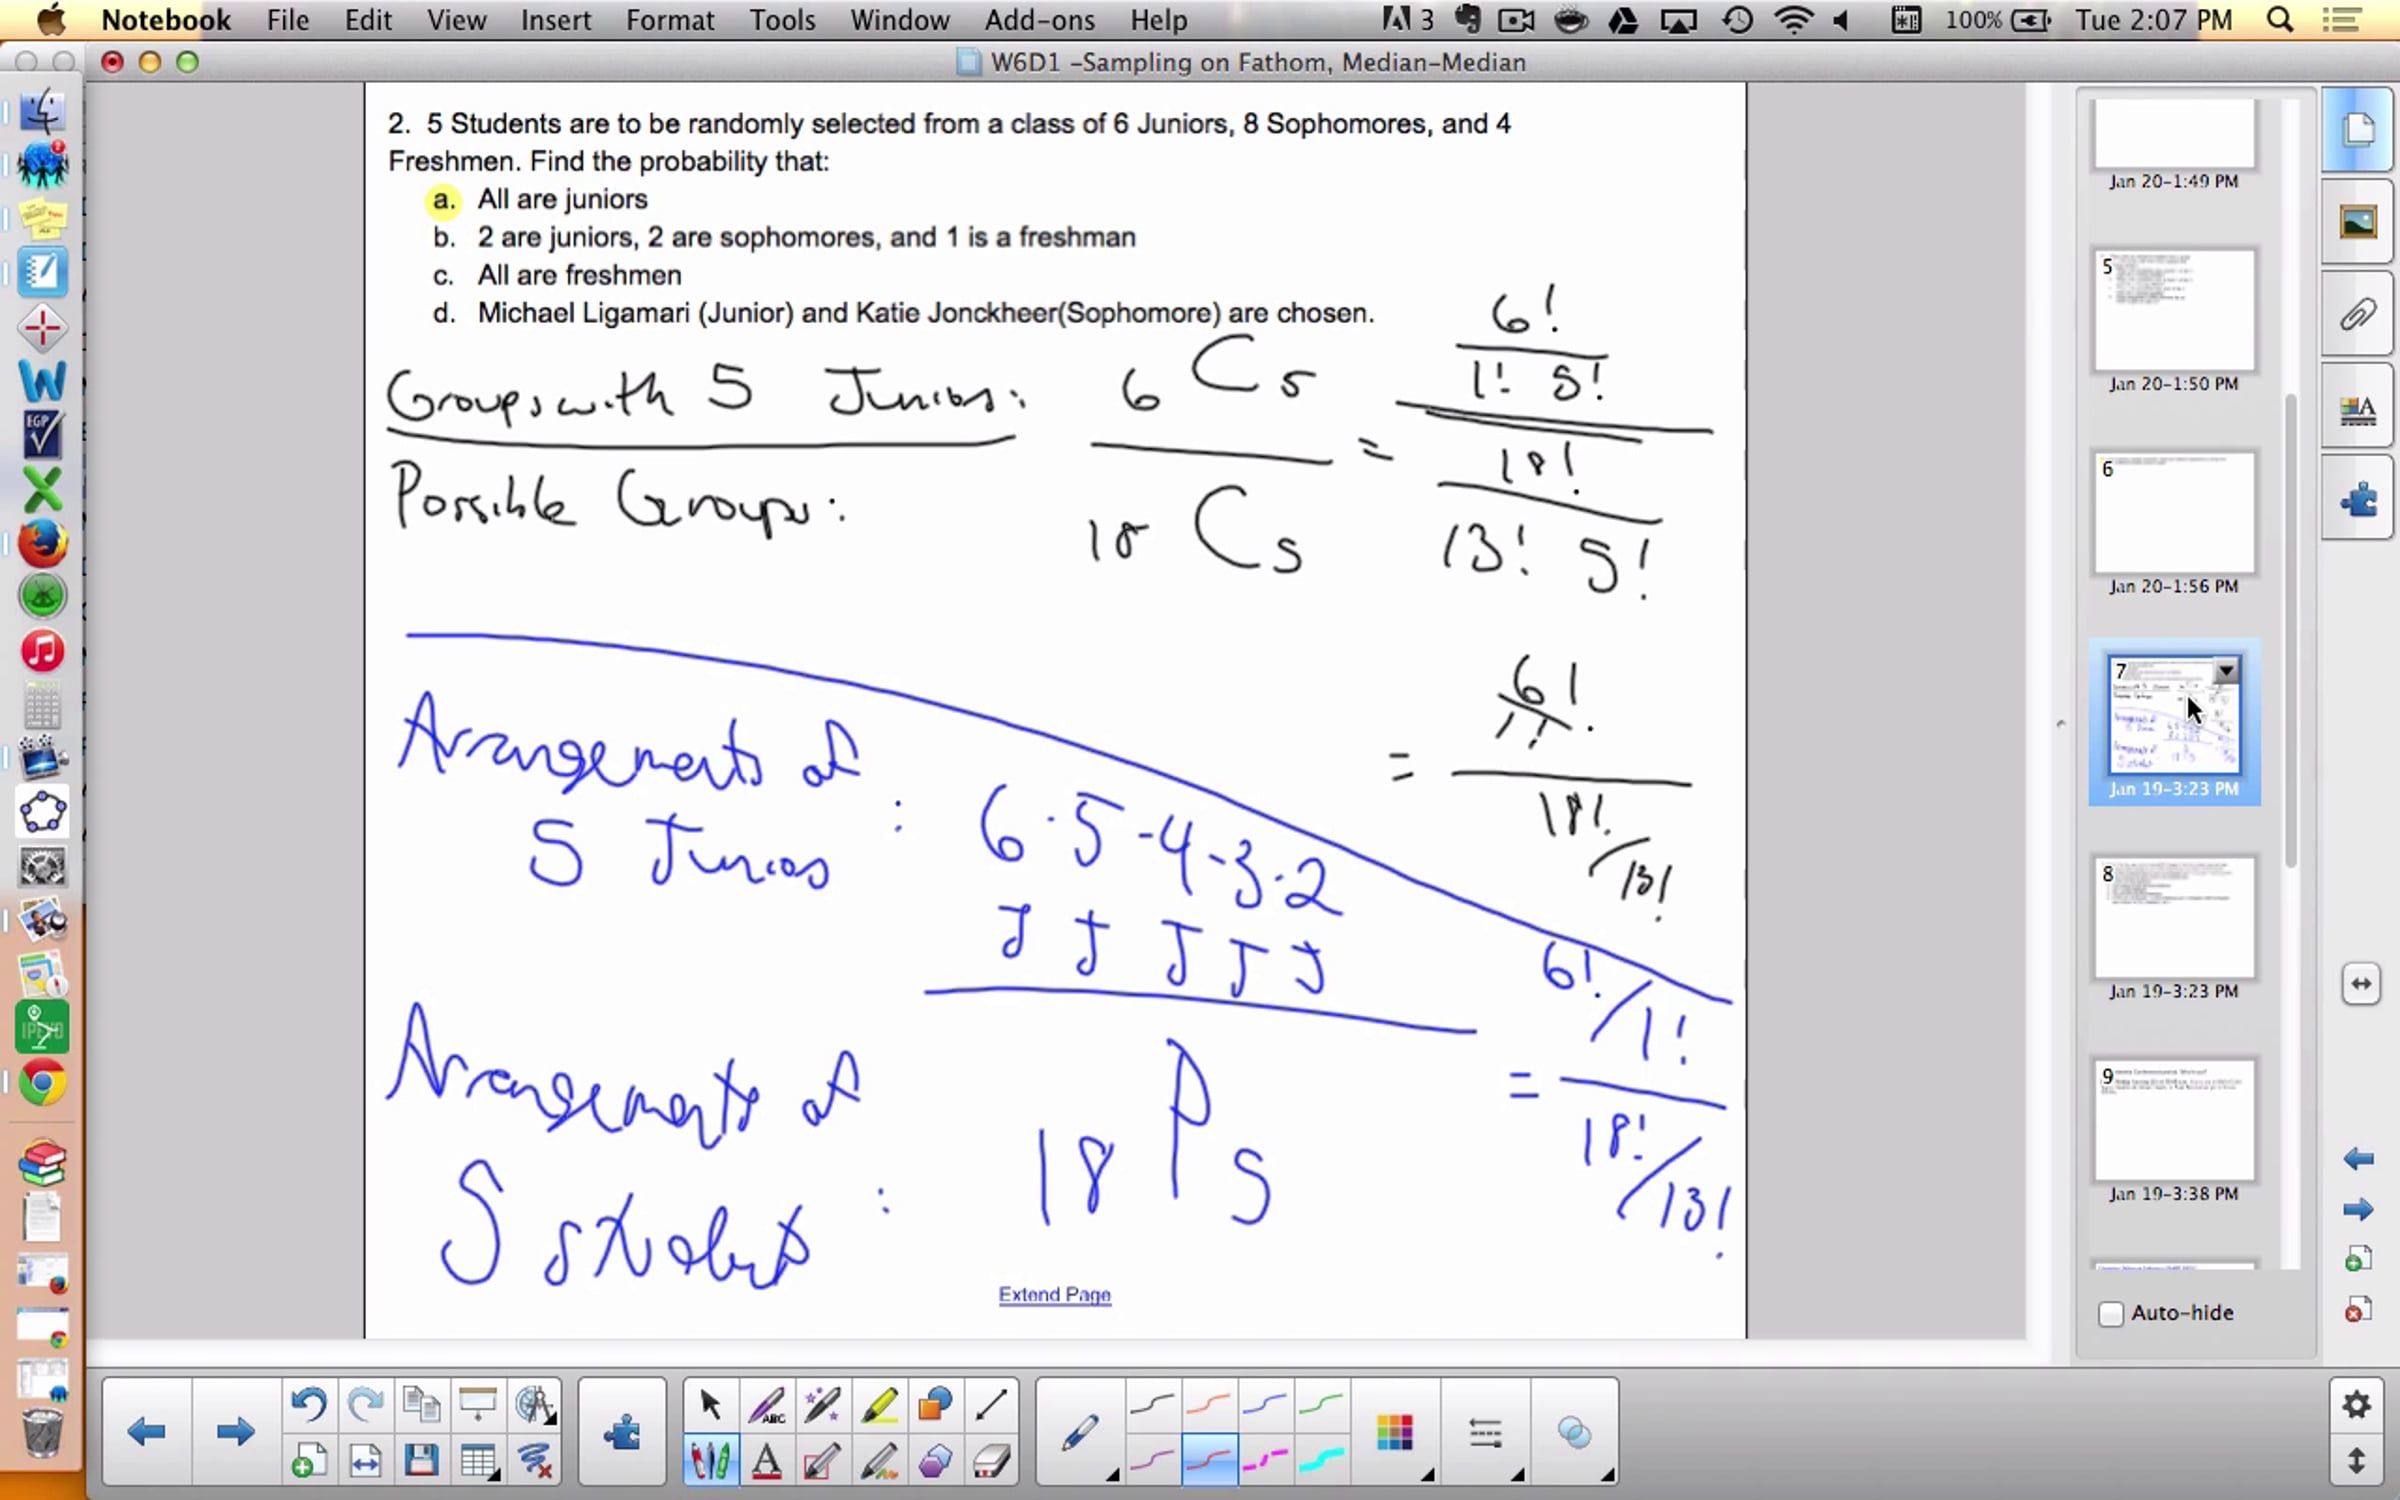 Notebook File Edit View Insert Format Tools Window Add-ons Help 3 100% Tue 2:07 PM
W6D1 -Sampling on Fathom, Median-Median
2. 5 Students are to be randomly selected from a class of 6 Juniors, 8 Sophomores, and 4
Freshmen. Find the probability that:
a. All are juniors
b. 2 are juniors, 2 are sophomores, and 1 is a freshman
c. All are freshmen
d. Michael Ligamari (Junior) and Katie Jonckheer(Sophomore) are chosen.
Groups with 5 Juniors: 6 C 5 = 6! / 1! 5!
Possible Groups: 18 C 5 18! / 13! 5!
= 6! / 1!
18! / 13!
Arrangements of
5 Juniors : 6·5-4-3·2
J J J J J
Arrangements of
5 students : 18 P 5
= 6! / 1!
18! / 13!
Extend Page
Jan 20-1:49 PM
5
Jan 20-1:50 PM
6
Jan 20-1:56 PM
7
Jan 19-3:23 PM
8
Jan 19-3:23 PM
9
Jan 19-3:38 PM
Auto-hide